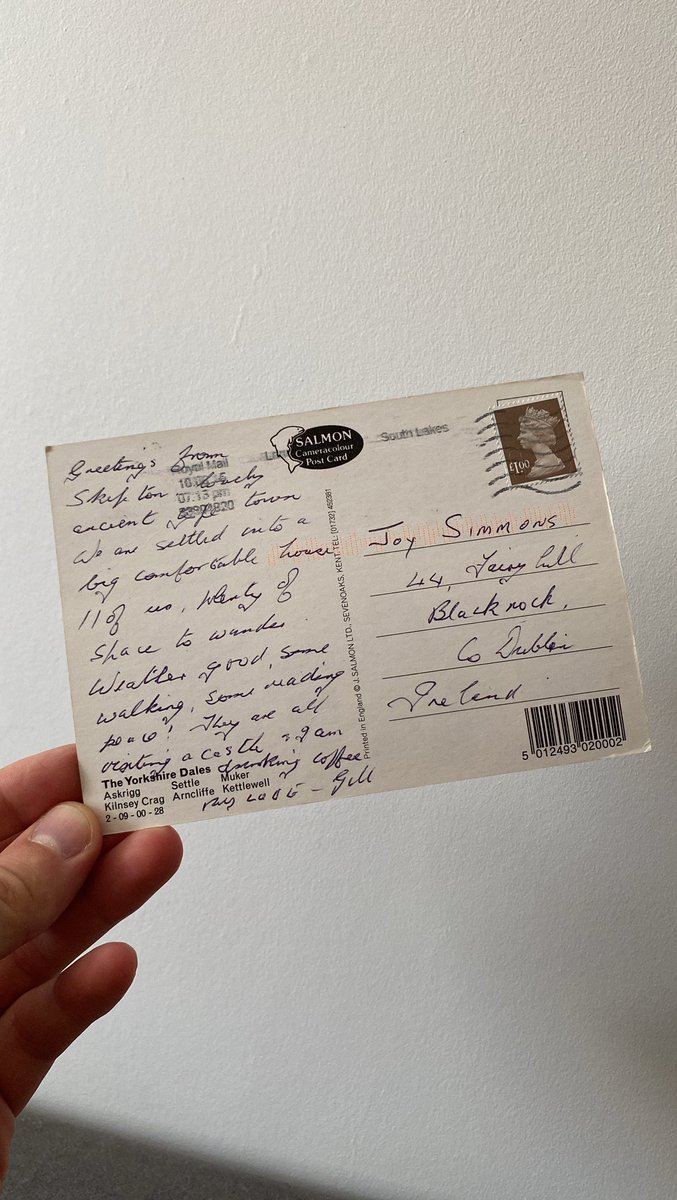 Greetings from
Skipton lovely
ancient town
We are settled into a
big comfortable house
11 of us, plenty of
space to wander
Weather good, some
walking, some reading
peace! They are all
visiting a castle, I am
drinking coffee
Gill
Royal Mail
07.13 pm
South Lakes
SALMON
Cameracolour
Post Card
£1.00
Joy Simmons
44, Fairy hill
Blackrock,
Co Dublin
Ireland
Printed in England © J. SALMON LTD., SEVENOAKS, KENT. TEL: [01732] 452381
The Yorkshire Dales
Askrigg Settle Muker
Kilnsey Crag Arncliffe Kettlewell
2 - 09 - 00 - 28
5 012493 020002